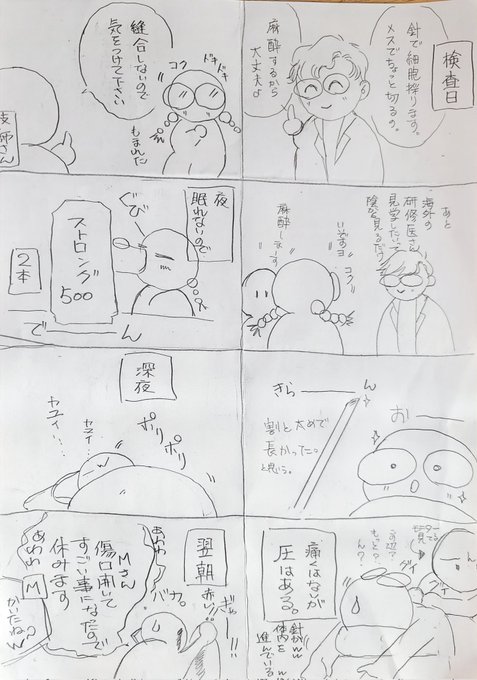 検査日
針で細胞採ります。
メスでちょっと切るの。
麻酔するから
大丈夫よ
あと
海外の
研修医さん
見学したいって
麻酔しまーす
コクッ
おー
きらーん
割と太めで
長かった。
と思う。
モニター
見てる
ん?
痛くはないが
圧はある。
針がwww
体内を
進んでいる
ドキドキ
コク
縫合しないので
気をつけて下さい
もまれた
技師さん
夜
眠れないので
ぐび
ストロング
500
2本
でーん
深夜
ポリポリ
カユイ…
カユイ…
翌朝
赤い!
バナ。
Mさん
傷口開いて
すごい事になったので
休みます
あわわ
あわわ
M
かいたねw